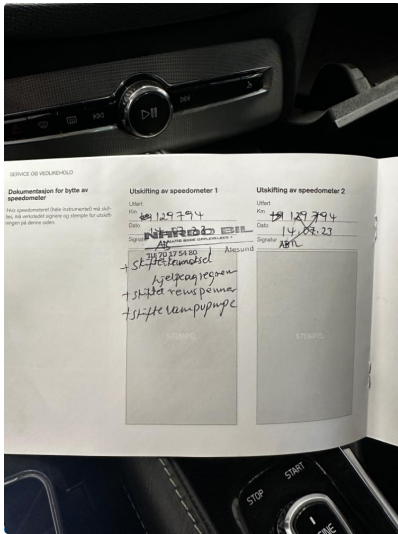 SERVICE OG VEDLIKEHOLD
Dokumentasjon for bytte av
speedometer
Hvis speedometeret (hele instrumentet) må skif-
tes, må verkstedet signere og stemple for utskift-
ningen på denne siden.
Utskifting av speedometer 1
Utført
Km 129794
Dato
NARBO BIL
Signatur
Ålesund
Tlf 70 17 54 80
+ skiftet
+ skiftet remspenner
+ skiftet vannpumpe
STEMPEL
Utskifting av speedometer 2
Utført
Km 129794
Dato 14,07.23
Signatur
STEMPEL
STOP
START